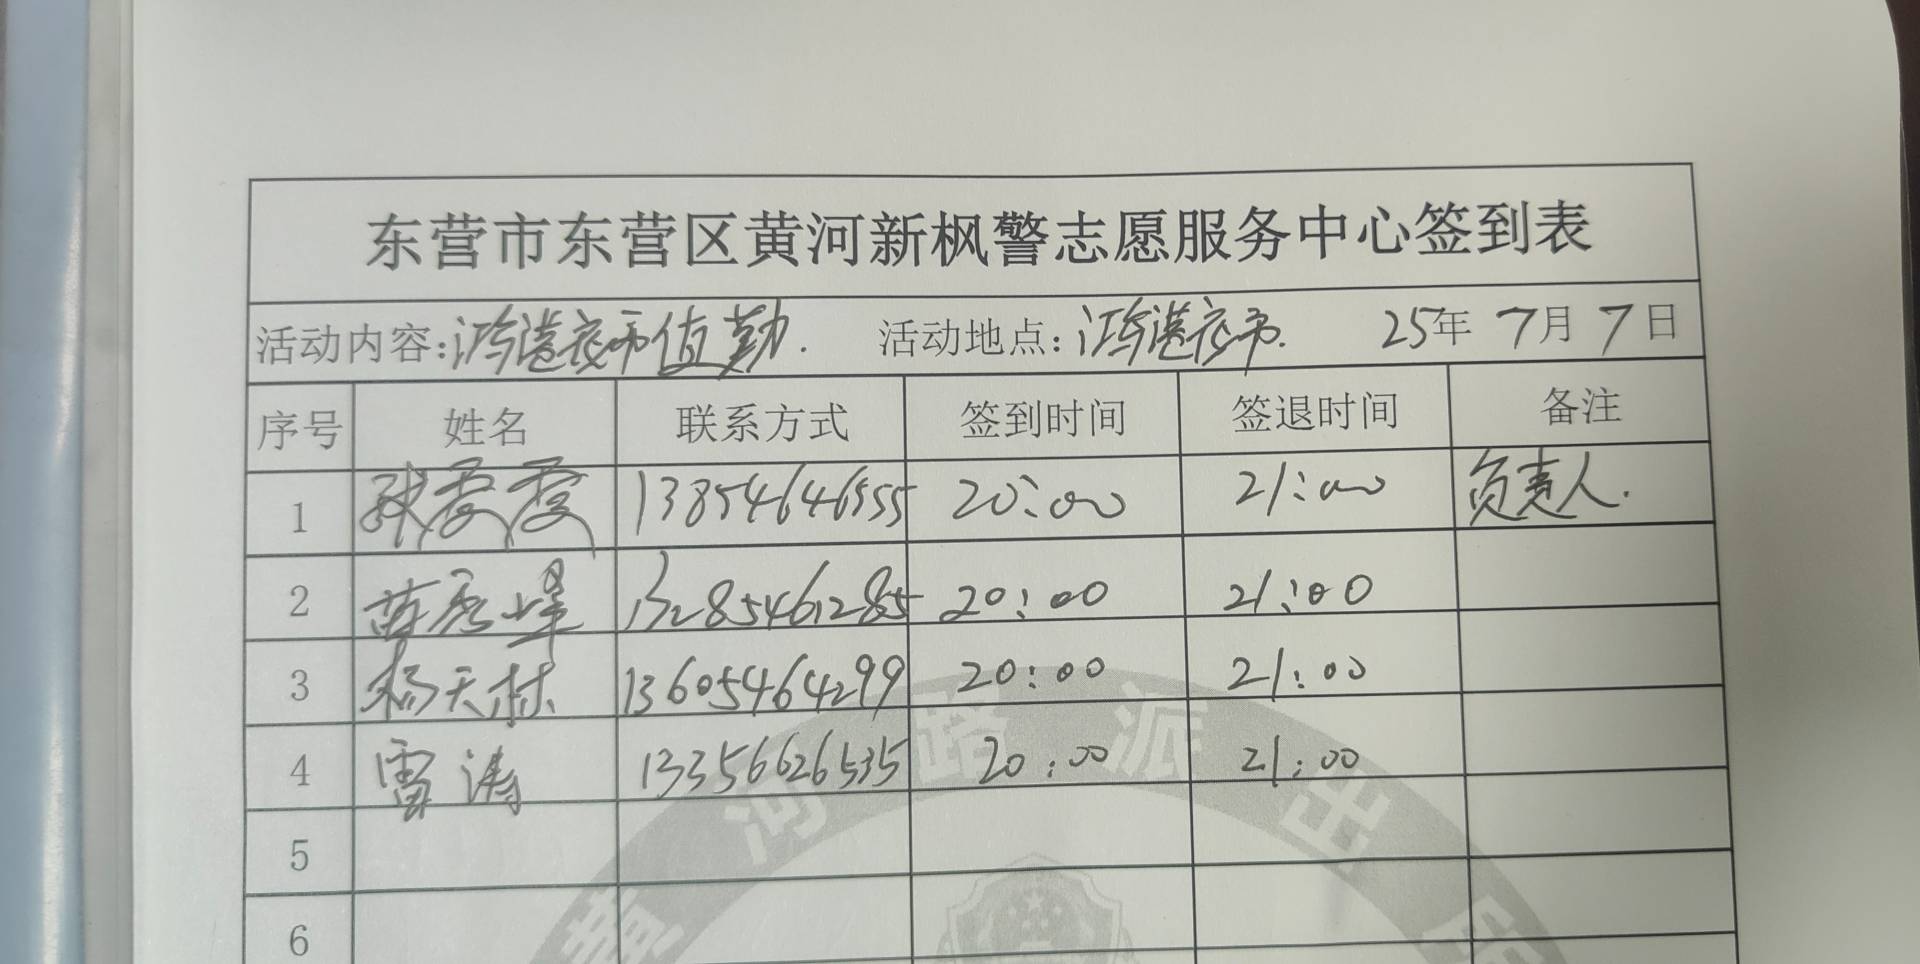 东营市东营区黄河新枫警志愿服务中心签到表
活动内容:鸿港夜市值勤. 活动地点:鸿港夜市. 25年 7月 7日
序号 姓名 联系方式 签到时间 签退时间 备注
1 13854646555 20:00 21:00 负责人.
2 13285461285 20:00 21:00
3 杨天林 13605464299 20:00 21:00
4 雷涛 13356626535 20:00 21:00
5
6
黄河路派出所